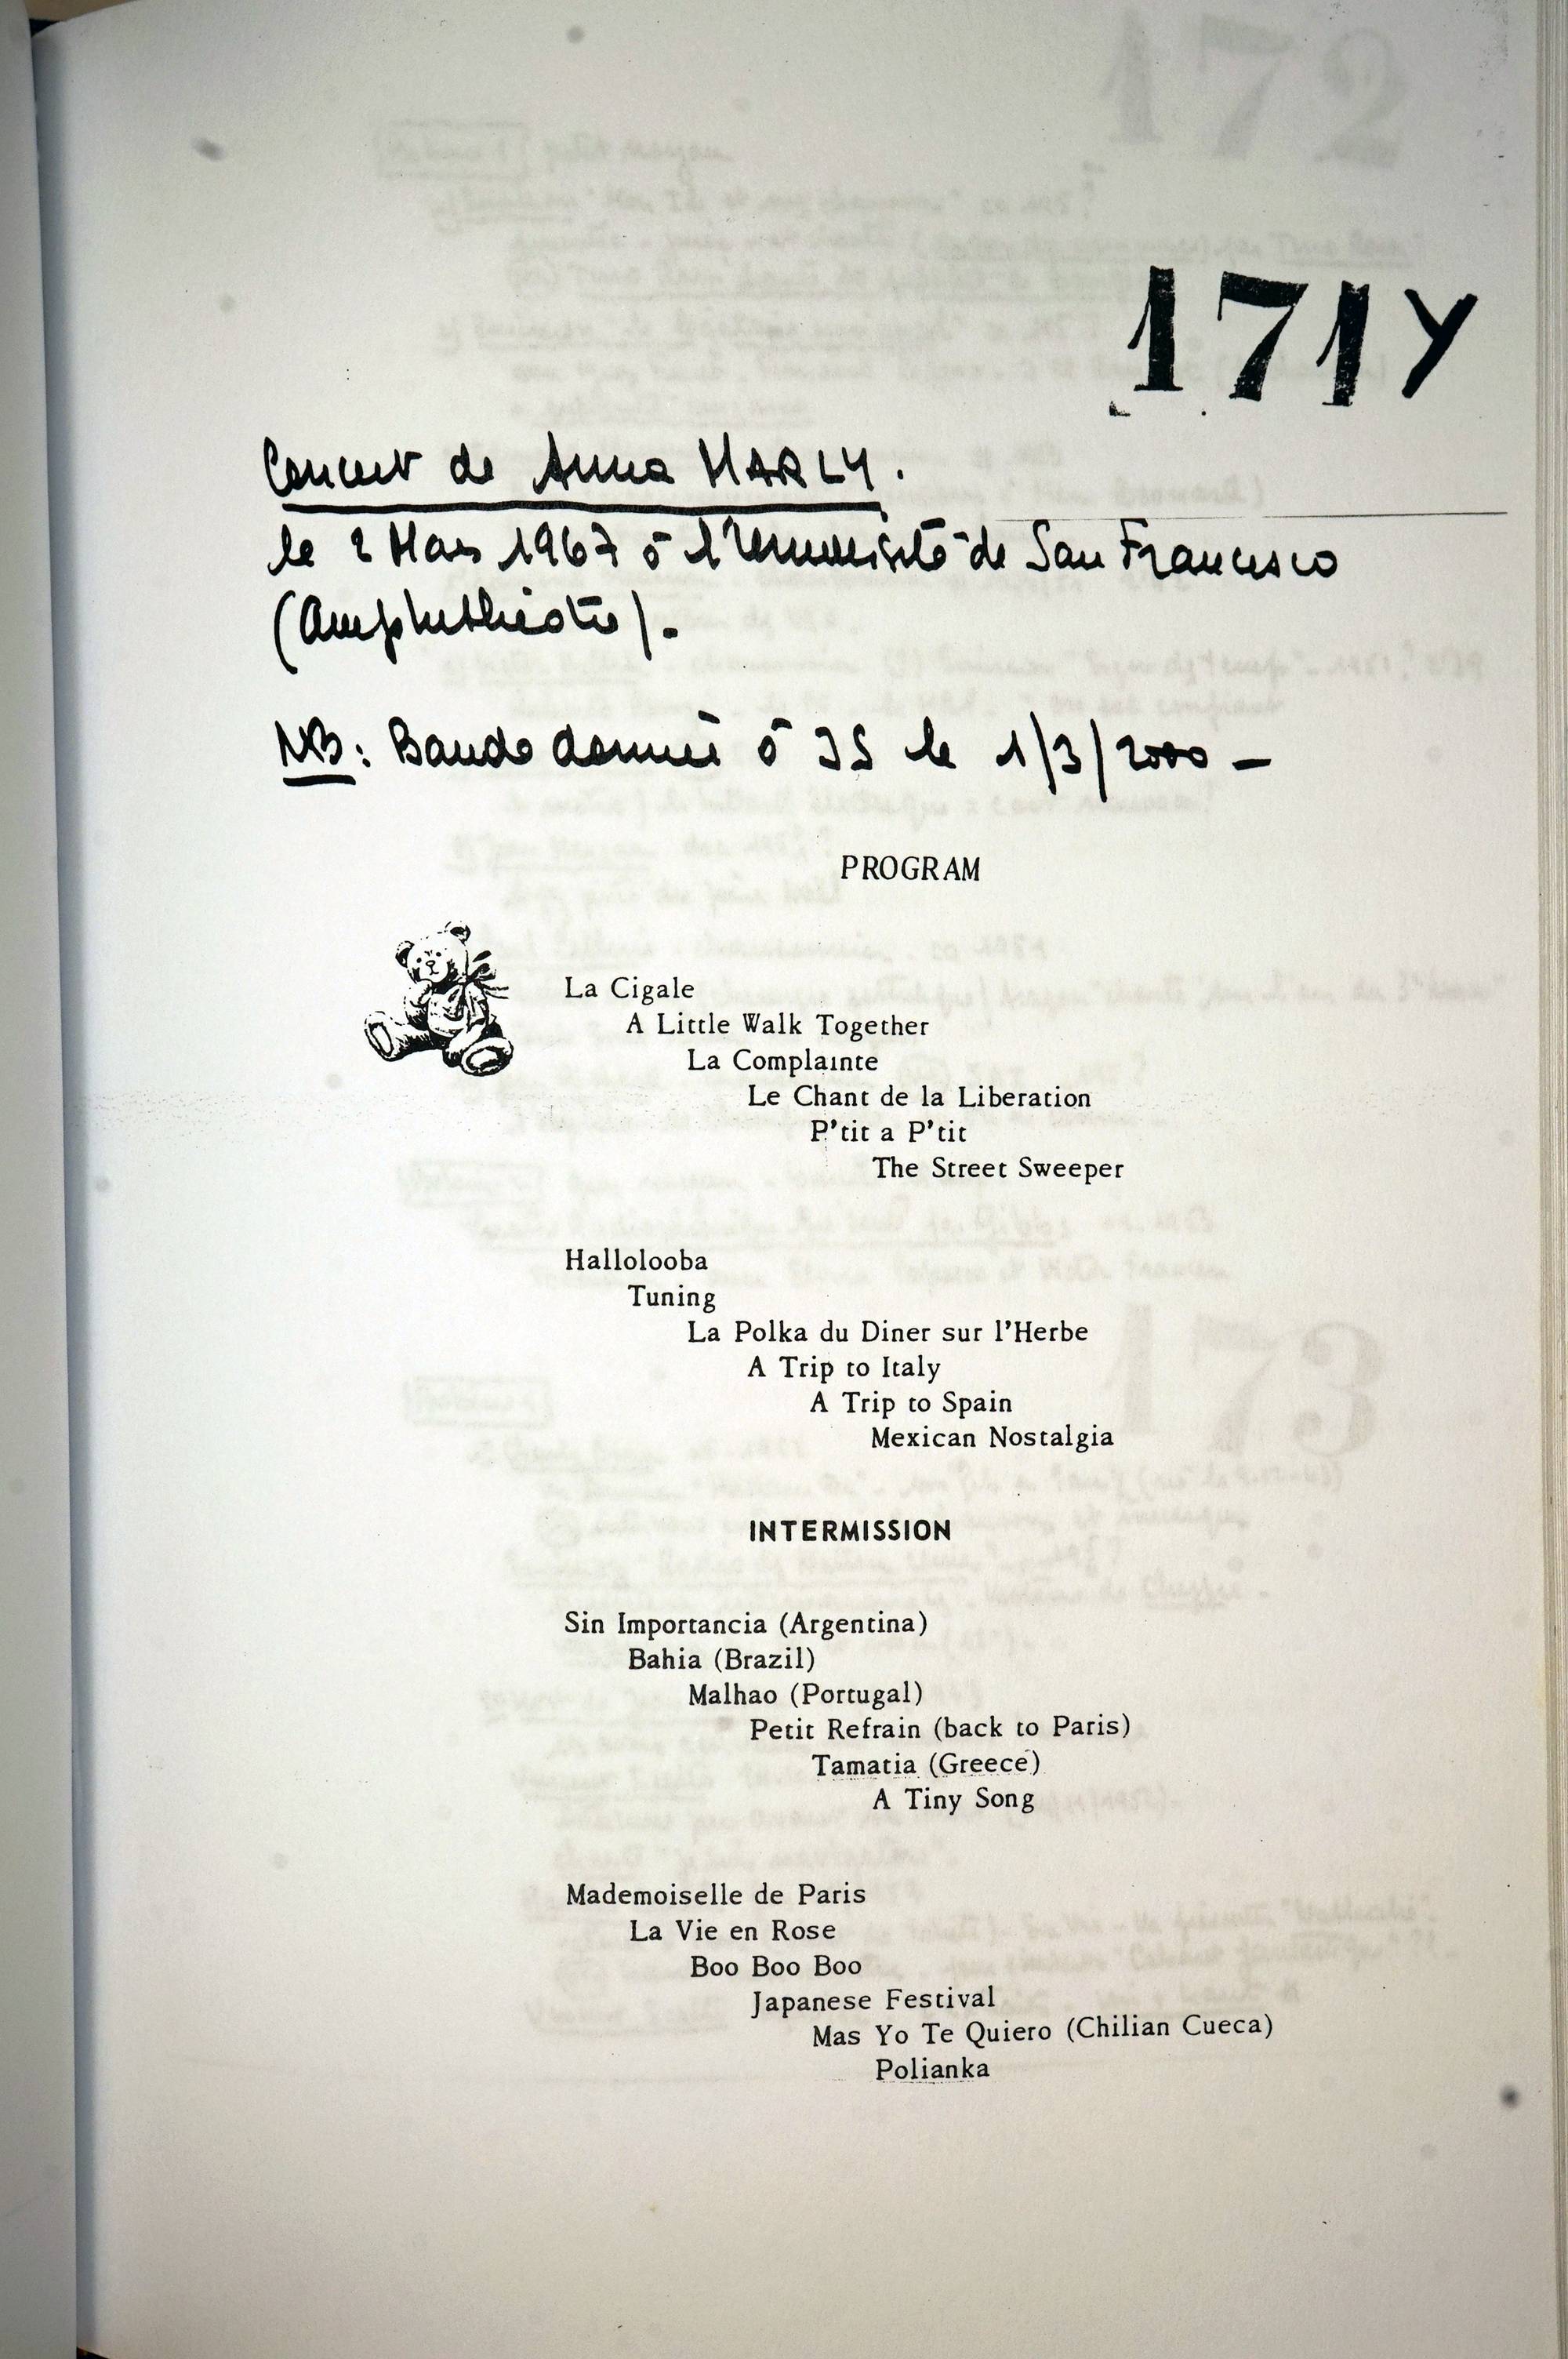 171Y
Concert de Anna MARLY.
le 2 Mars 1967 à l'Université de San Francisco
(Amphithéâtre).
NB: Bande donnée à JS le 1/3/2000 -
PROGRAM
La Cigale
A Little Walk Together
La Complainte
Le Chant de la Liberation
P'tit a P'tit
The Street Sweeper
Hallolooba
Tuning
La Polka du Diner sur l'Herbe
A Trip to Italy
A Trip to Spain
Mexican Nostalgia
INTERMISSION
Sin Importancia (Argentina)
Bahia (Brazil)
Malhao (Portugal)
Petit Refrain (back to Paris)
Tamatia (Greece)
A Tiny Song
Mademoiselle de Paris
La Vie en Rose
Boo Boo Boo
Japanese Festival
Mas Yo Te Quiero (Chilian Cueca)
Polianka
172
173